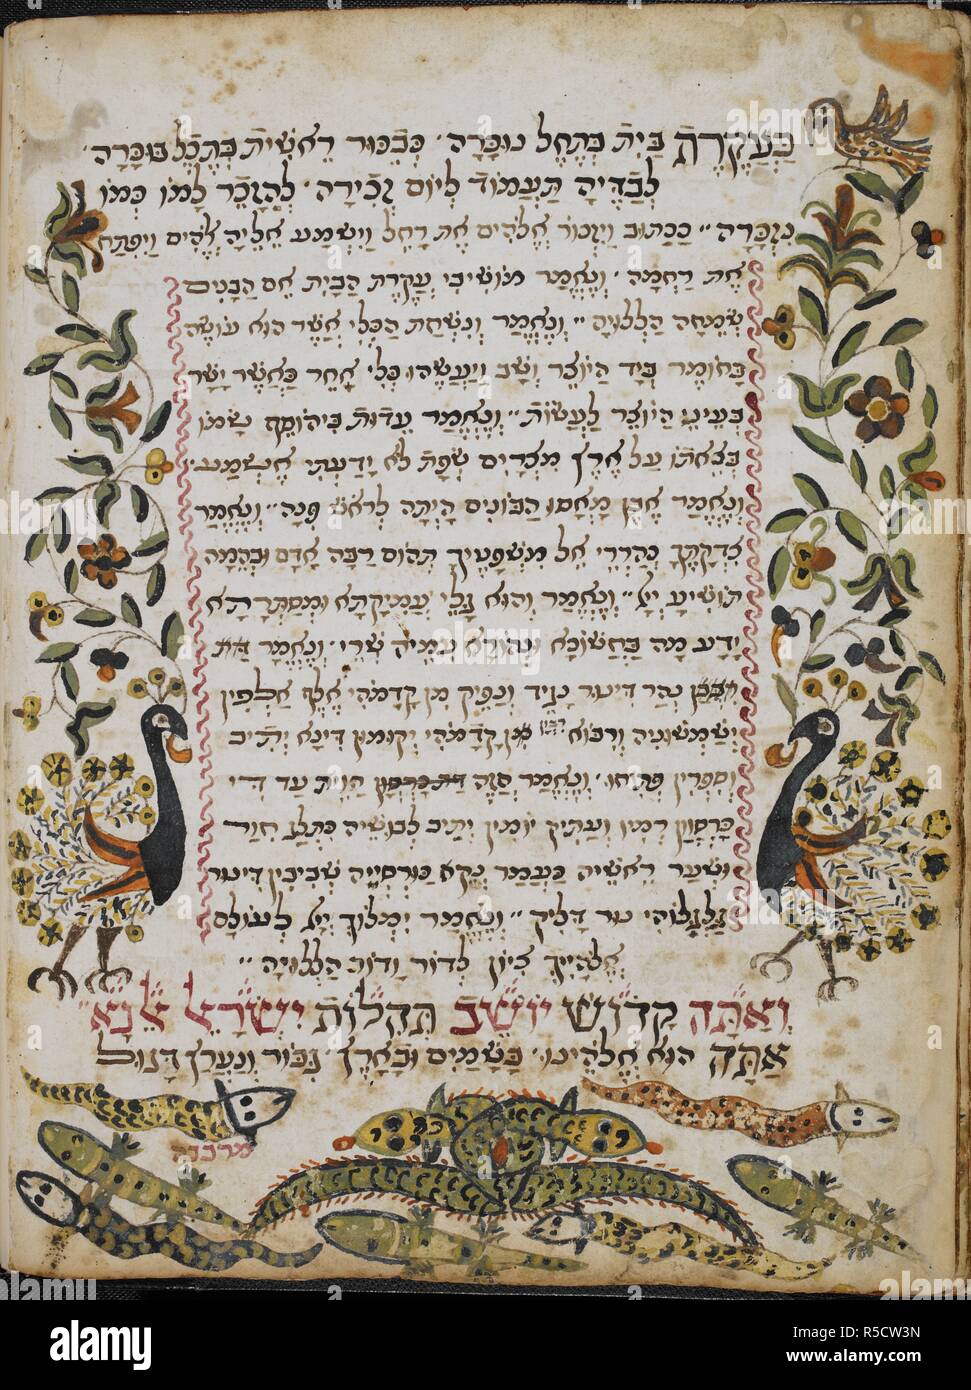 כַּעֲקֶרֶת בַּיִת בְּתֵחֶל נוּכָּרָה׳ כְּבִכּוּר רֵאשִׁית בְּתֵבֵל בוּכָּרָה׳
לְבַדֵּיהָ תַּעֲמוֹד לְיוֹם זְכִירָה׳ לְהִזָּכֵר לָמוֹ כְּמוֹ
נִזְכָּרָה״ כַּכָּתוּב וַיִּזְכּוֹר אֱלֹהִים אֶת רָחֵל וַיִּשְׁמַע אֵלֶיהָ אֱלֹהִים וַיִּפְתַּח
אֶת רַחְמָהּ׳ וְנֶאֱמַר מוֹשִׁיבִי עֲקֶרֶת הַבַּיִת אֵם הַבָּנִים
שְׂמֵחָה הַלְלוּיָהּ״ וְנֶאֱמַר וְנִשְׁחַת הַכְּלִי אֲשֶׁר הוּא עוֹשֶׂה
בַּחוֹמֶר בְּיַד הַיּוֹצֵר וְשָׁב וַיַּעֲשֵׂהוּ כְּלִי אַחֵר כַּאֲשֶׁר יָשַׁר
בְּעֵינֵי הַיּוֹצֵר לַעֲשׂוֹת״ וְנֶאֱמַר עֵדוּת בִּיהוֹסֵף שָׂמוֹ
בְּצֵאתוֹ עַל אֶרֶץ מִצְרָיִם שְׂפַת לֹא יָדַעְתִּי אֶשְׁמַע׳
וְנֶאֱמַר אֶבֶן מָאֲסוּ הַבּוֹנִים הָיְתָה לְרֹאשׁ פִּנָּה״ וְנֶאֱמַר
צִדְקָתְךָ כְּהַרְרֵי אֵל מִשְׁפָּטֶיךָ תְּהוֹם רַבָּה אָדָם וּבְהֵמָה
תוֹשִׁיעַ יְיָ״ וְנֶאֱמַר וְהוּא גָּלֵי עֲמִיקָתָא וּמְסַתְּרָתָא
יָדַע מָה בַּחֲשׁוֹכָא וּנְהוֹרָא עִמֵּיהּ שְׁרֵי׳ וְנֶאֱמַר
נְהַר דִּינוּר נָגֵיד וְנָפֵיק מִן קֳדָמֹהִי אֶלֶף אַלְפִין
יְשַׁמְּשׁוּנֵּיהּ וְרִבּוֹא רִבְבָן מִן קֳדָמֹהִי יְקוּמוּן דִּינָא יְתִיב
וְסִפְרִין פְּתִיחוּ׳ וְנֶאֱמַר חָזֵה הֲוֵית עַד דִּי
כָּרְסָוָן רְמִיו וְעַתִּיק יוֹמִין יְתִיב לְבוּשֵׁיהּ כִּתְלַג חִוָּר
וּשְׂעַר רֵאשֵׁיהּ כַּעֲמַר נְקֵא כּוּרְסְיֵיהּ שְׁבִיבִין דִּינוּר
גַּלְגִּלּוֹהִי נוּר דָּלִיק״ וְנֶאֱמַר יִמְלוֹךְ יְיָ לְעוֹלָם
אֱלֹהַיִךְ צִיּוֹן לְדוֹר וָדוֹר הַלְלוּיָהּ״
וְאַתָּה קָדוֹשׁ יוֹשֵׁב תְּהִלּוֹת יִשְׂרָאֵל אֵל נָא״
אַתָּה הוּא אֱלֹהֵינוּ׳ בַּשָּׁמַיִם וּבָאָרֶץ׳ גִּבּוֹר וְנַעֲרָץ דָּגוּל
מרבבה
alamy
alamy
Image ID: R5CW3N
www.alamy.com